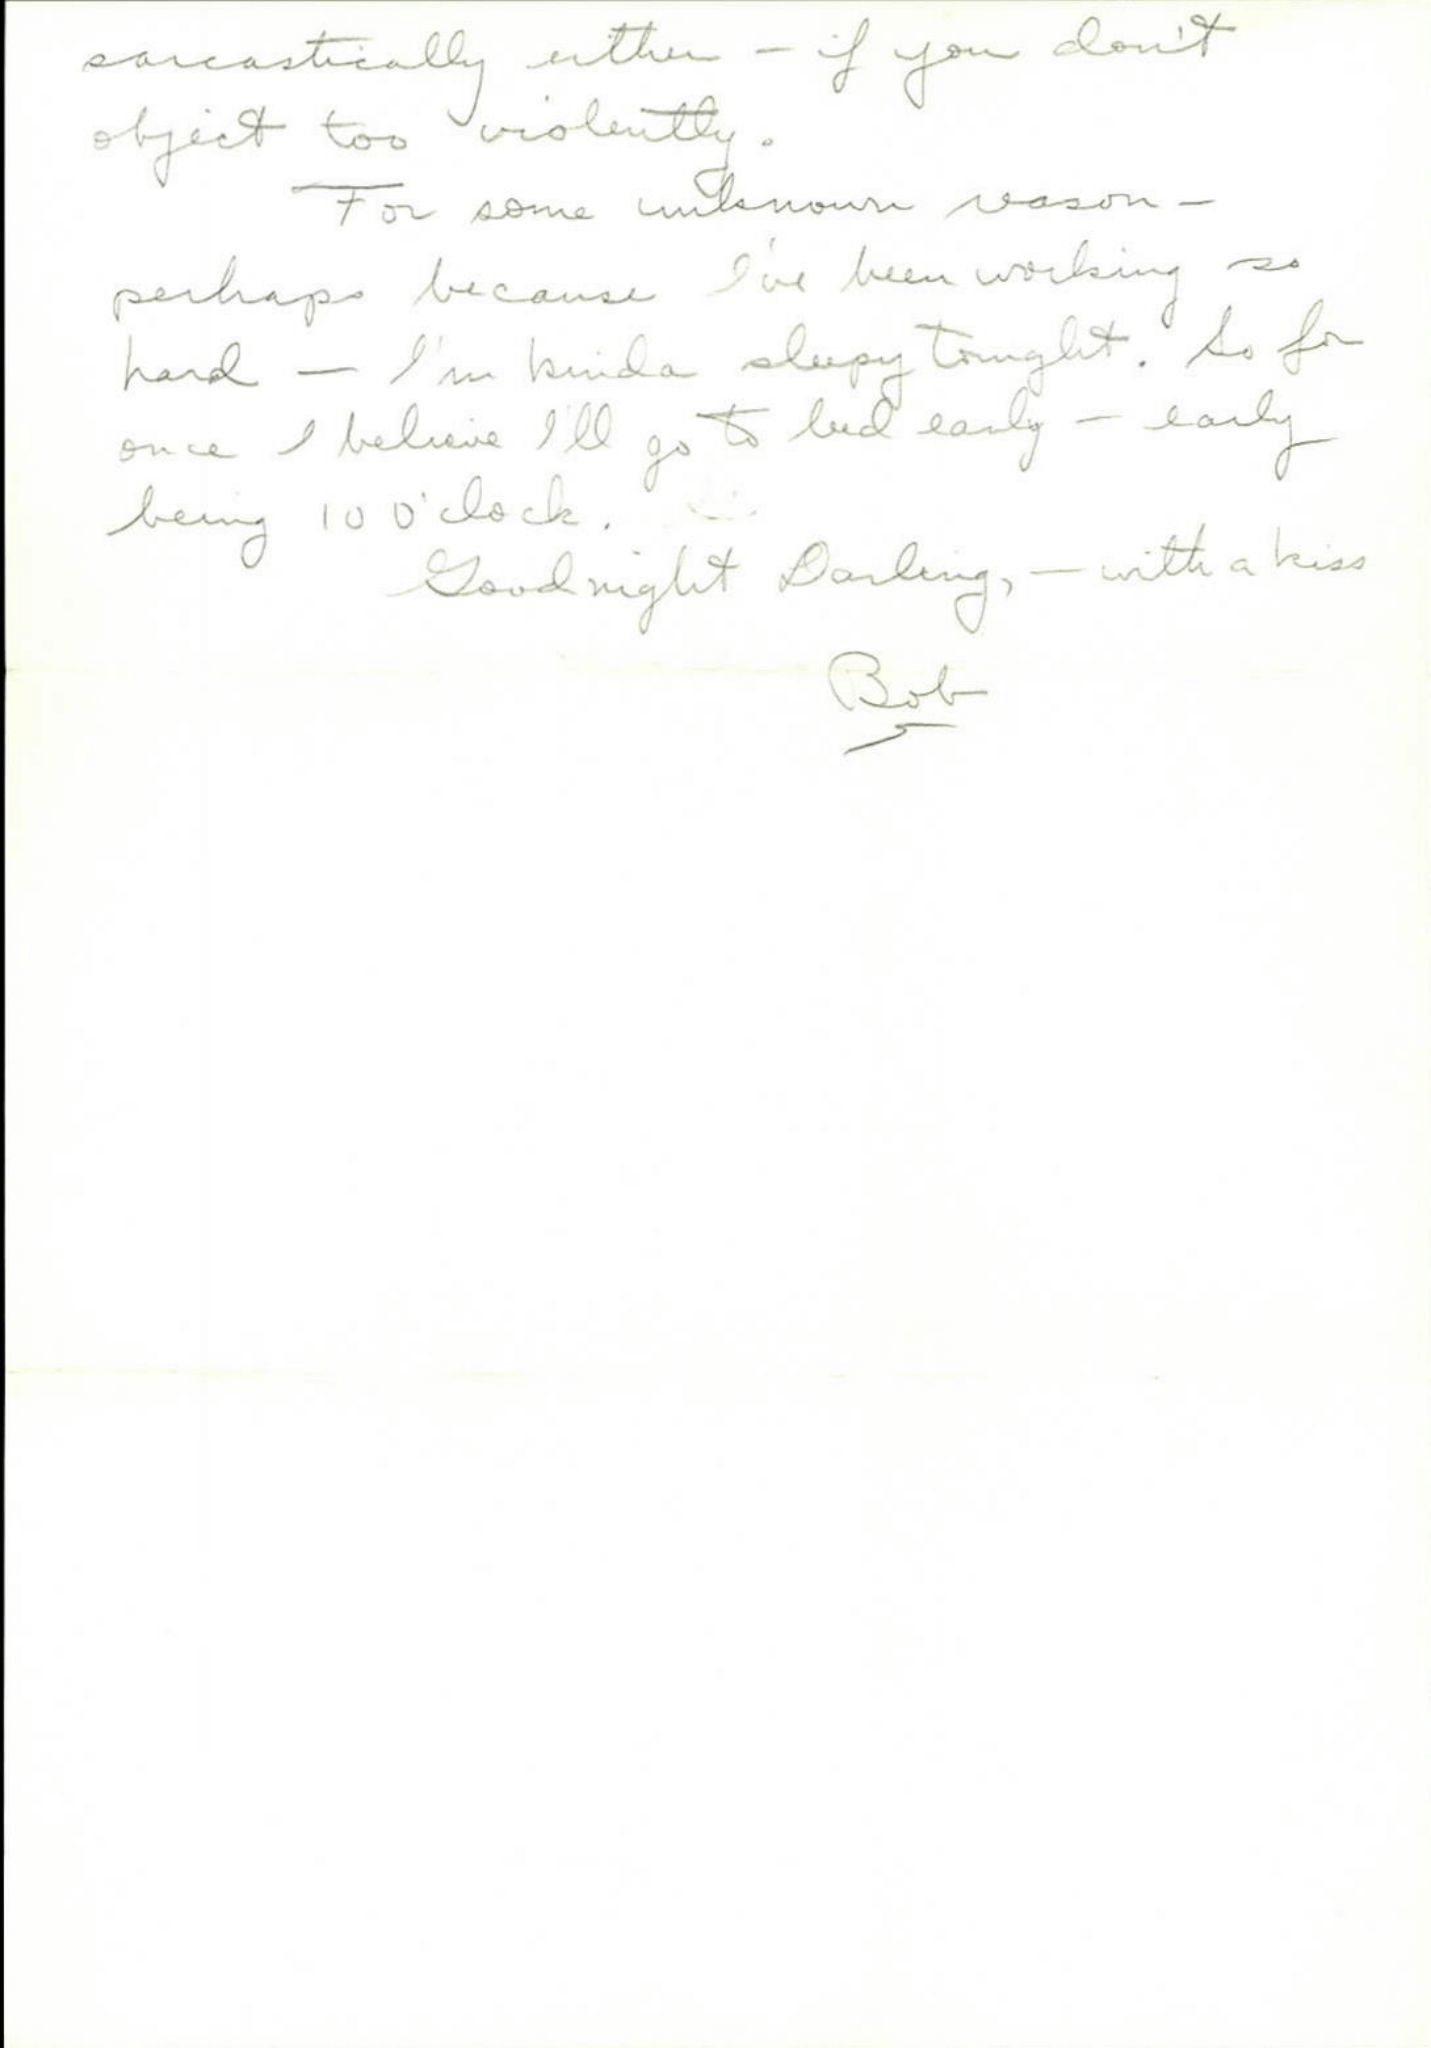 sarcastically either – if you don't
object too violently.
For some unknown reason –
perhaps because I've been working so
hard – I'm kinda sleepy tonight. So for
once I believe I'll go to bed early – early
being 10 O'clock.
Goodnight Darling, – with a kiss
Bob